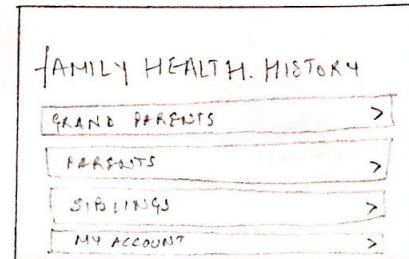 FAMILY HEALTH. HISTORY
GRAND PARENTS >
PARENTS >
SIBLINGS >
MY ACCOUNT >